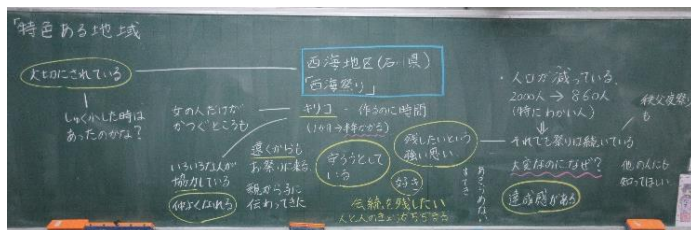 「特色ある地域
大切にされている
しゅくしした時は
あったのかな?
西海地区(石川県)
「西海祭り」
女の人だけが
かつぐところも
キリコ - 作るのに時間
いろいろな人が
協力している
仲よくなれる
遠くからも
お祭りに来る
親から子に
伝わってきた
守ろうとして
いる
残したいという
強い思い
好き
伝統を残したい
あきらめない
すてき
・人口が減っている。
2000人→860人
(特にわかい人)
それでも祭りは続いている
大変なのになぜ?
達成感がある
秩父夜祭り
も
他の人にも
知ってほしい